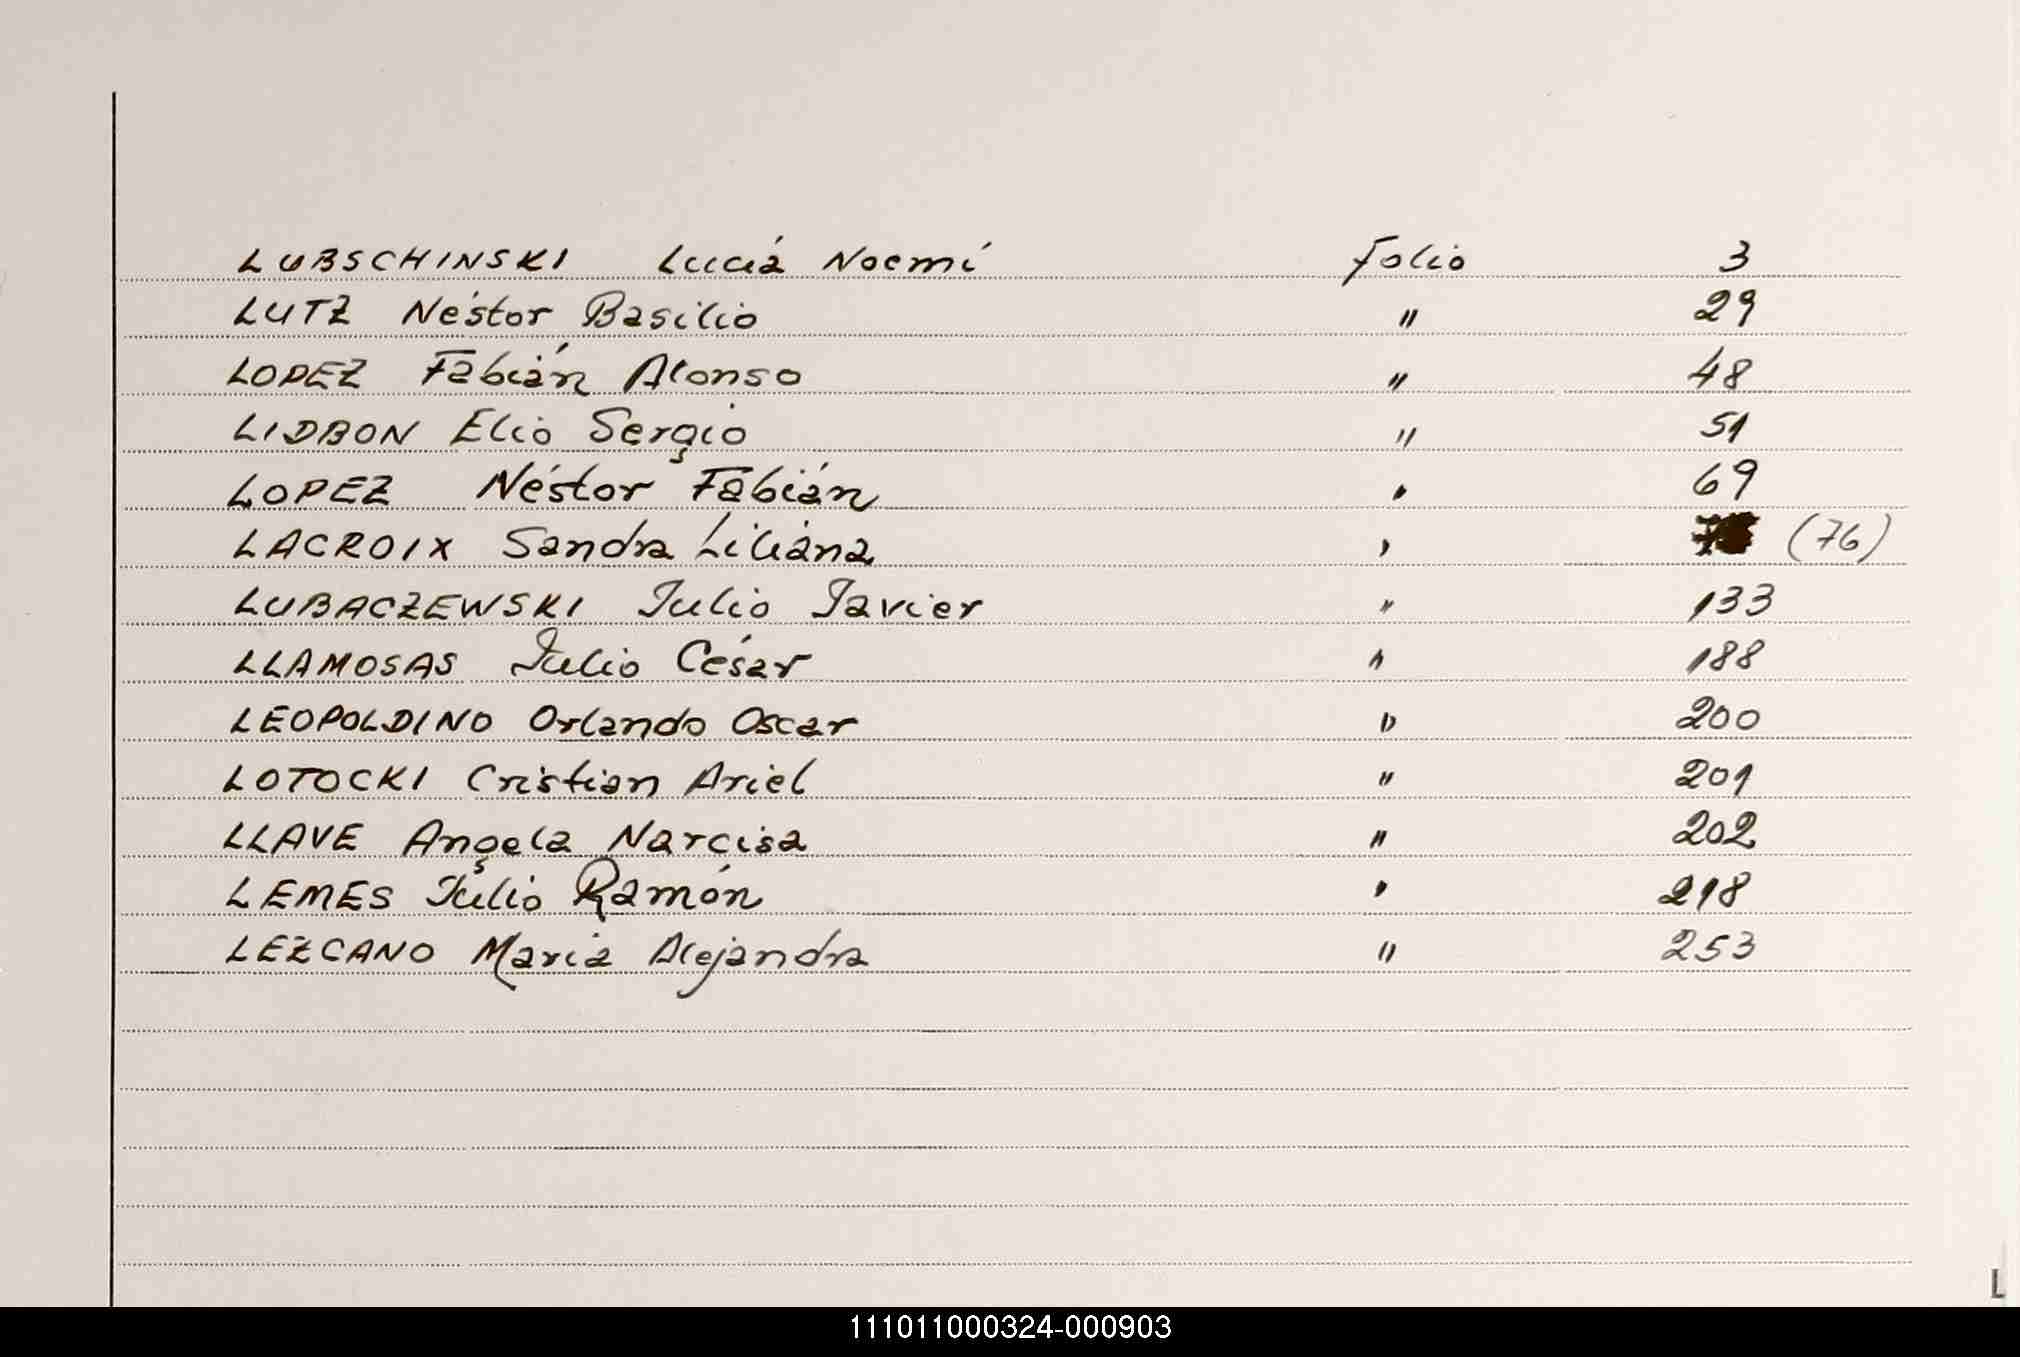 LUBSCHINSKI Lucía Noemí Folio 3
LUTZ Néstor Basilio " 29
LOPEZ Fabián Alonso " 48
LIDBON Elio Sergio " 51
LOPEZ Néstor Fabián " 69
LACROIX Sandra Liliana " (76)
LUBACZEWSKI Julio Javier " 133
LLAMOSAS Julio César " 188
LEOPOLDINO Orlando Oscar " 200
LOTOCKI Cristian Ariel " 201
LLAVE Angela Narcisa " 202
LEMES Julio Ramón " 218
LEZCANO Maria Alejandra " 253
L
111011000324-000903